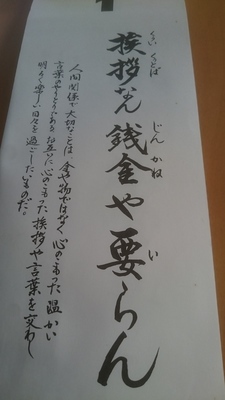 くいくとば じんかね い
挨拶なん銭金や要らん
人間関係で大切なことは、金や物ではなく心のこもった温かい
言葉のやりとりである。お互いに心のこもった挨拶や言葉を交わし
明るく楽しい日々を過ごしたいものだ。